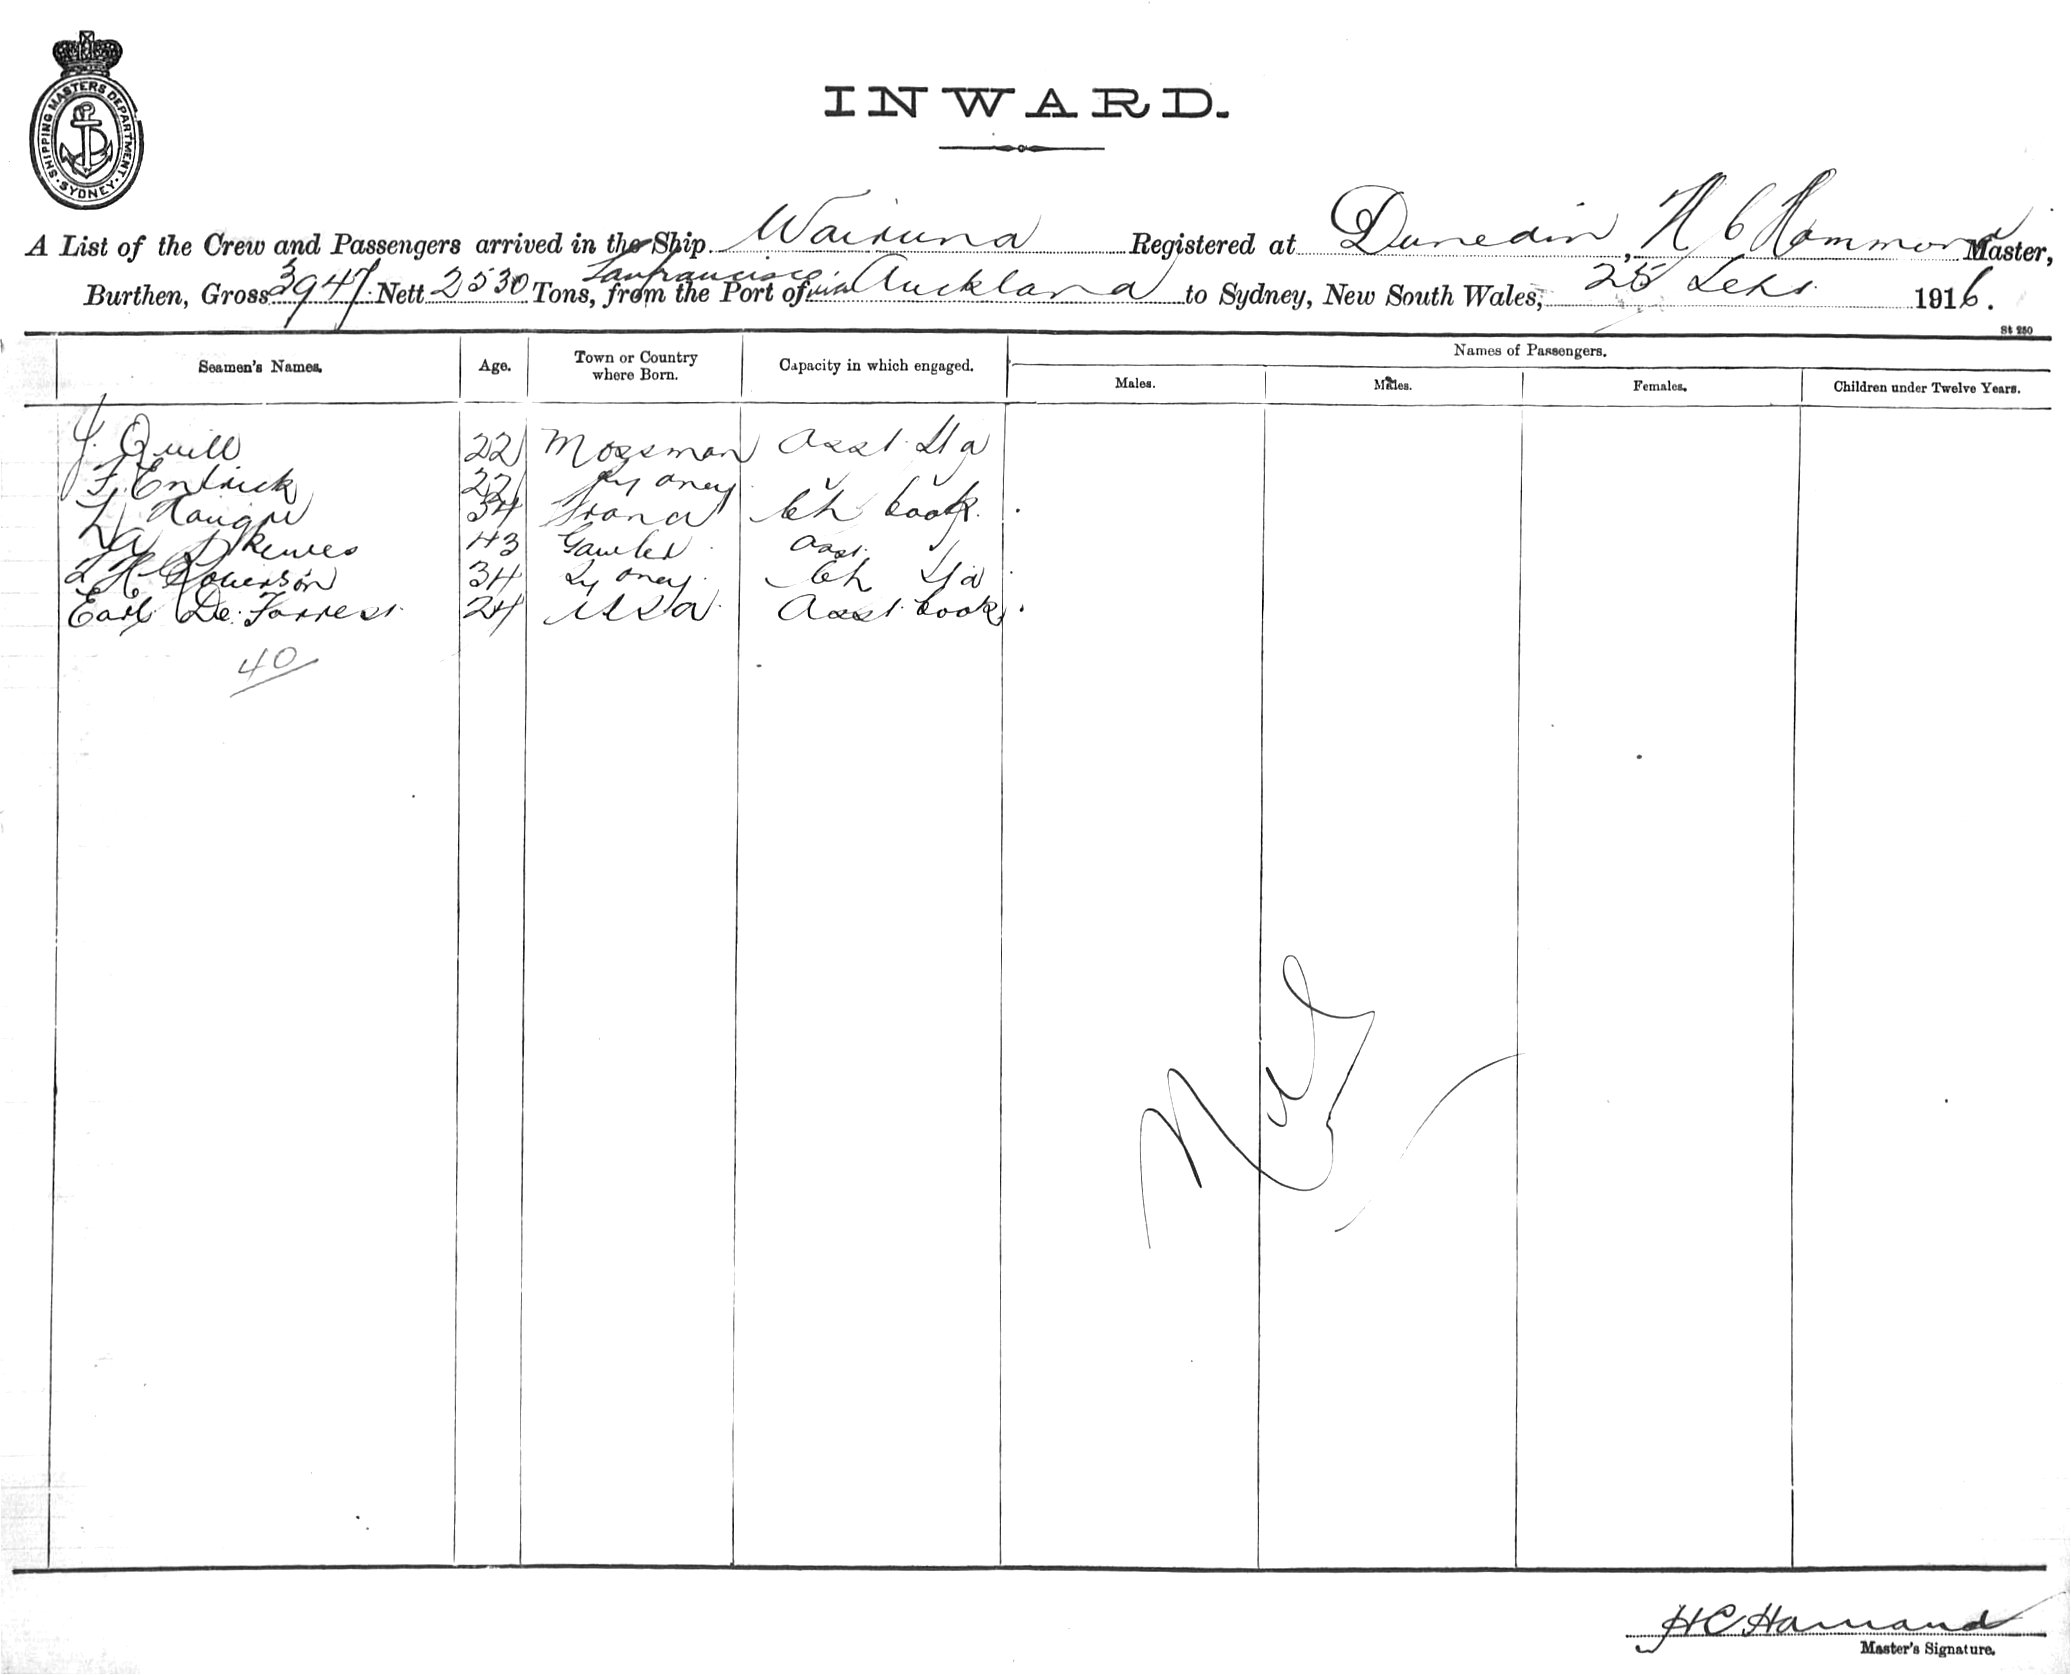 SHIPPING MASTERS DEPARTMENT
SYDNEY
INWARD.
A List of the Crew and Passengers arrived in the Ship Wairuna Registered at Dunedin, H C Hammond Master,
Burthen, Gross 3947 Nett 2530 Tons, from the Port of San Francisco via Auckland to Sydney, New South Wales, 25 Sept. 1916.
St 250
Seamen's Names. Age. Town or Country where Born. Capacity in which engaged. Names of Passengers.
Males. Males. Females. Children under Twelve Years.
J. Quill 22 Mossman Asst. Std
F. Entrick 22 Sydney
34 France Ch Cook.
Skewes 43 Gawler Asst.
34 Sydney. Ch Std
Earl De. Forrest. 24 USA. Asst. Cook.
40
Nil
H C Hammond
Master's Signature.